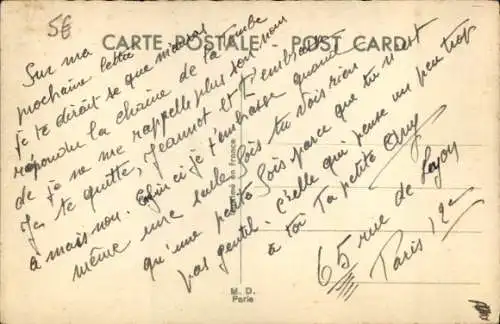 5€
CARTE POSTALE - POST CARD
Sur ma
prochaine lettre
je te dirait se que m'auras
répondre la chaine de la tombe
de je ne me rappelle plus son nom
Je te quitte, Jeannot et t'embrasse
a mais non. Enfin ci je t'embrasse quand
même une seule fois tu vois rien
qu'une petite fois parce que tu n'est
pas gentil. celle qui pense un peu trop
à toi Ta petite
65 rue de
Paris 12e
en France
M. D.
Paris